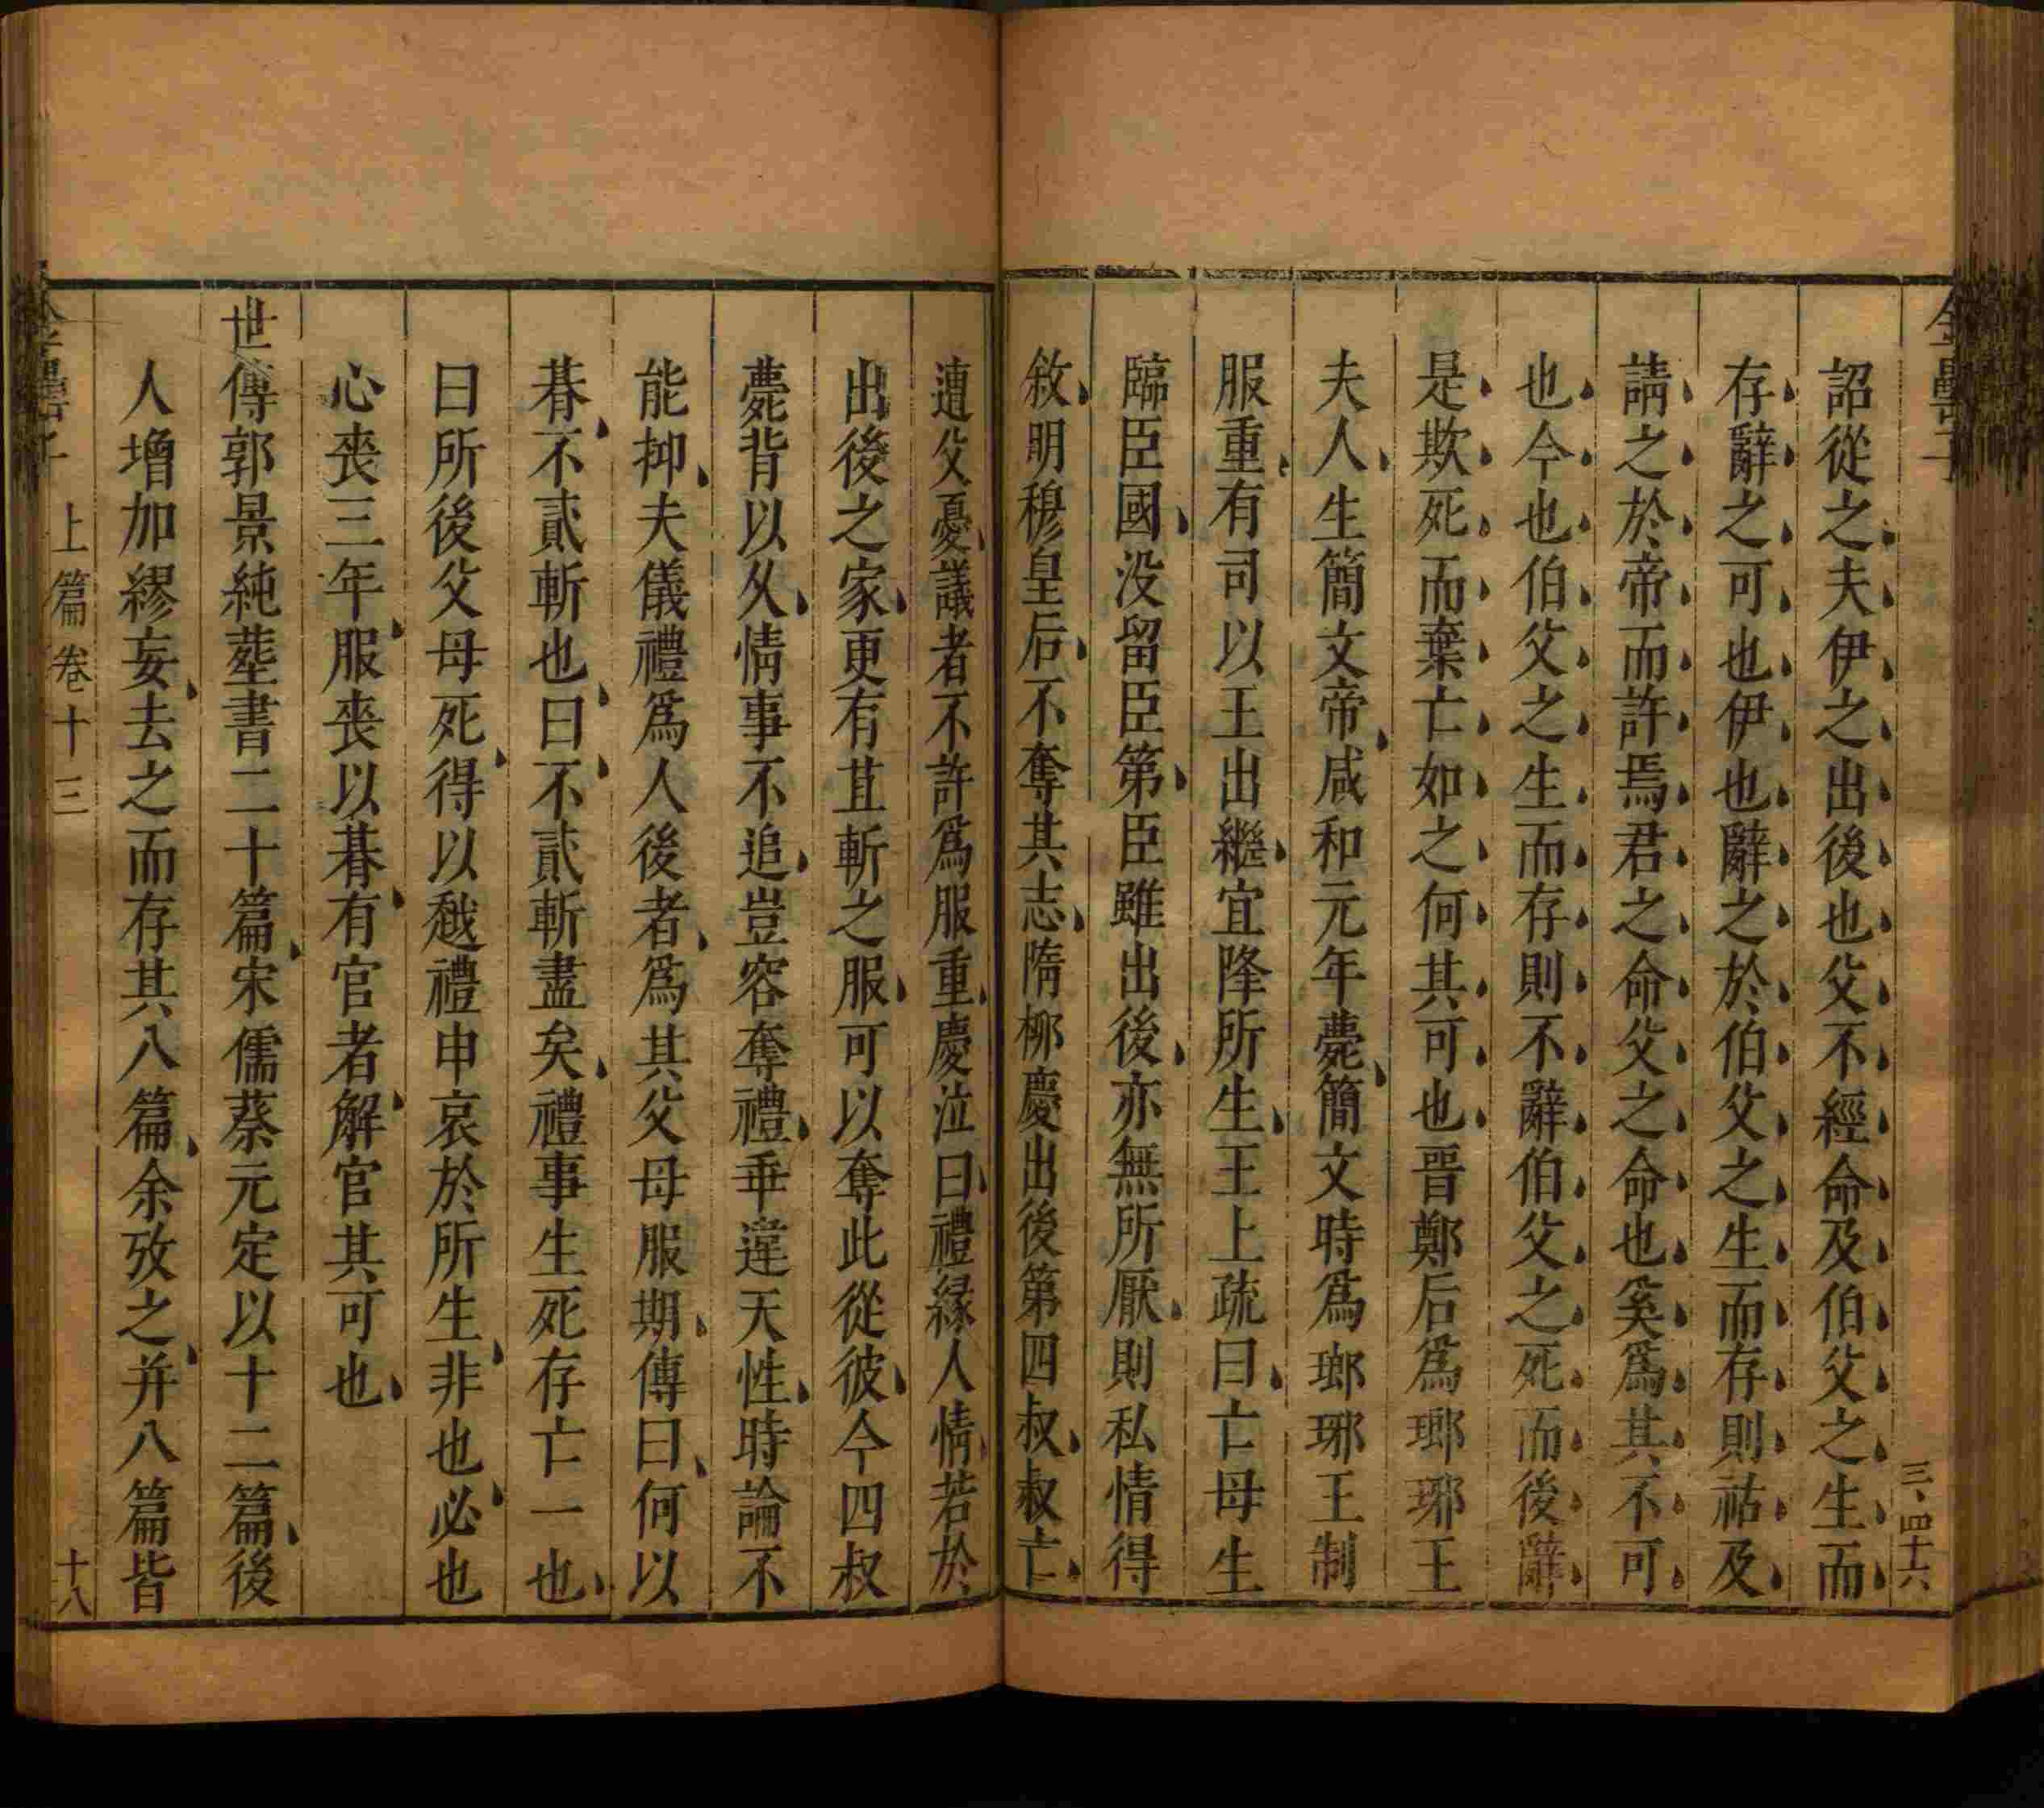 三四十六
詔從之夫伊之出後也父不經命及伯父之生而
存辭之可也伊也辭之於伯父之生而存則祜及
請之於帝而許焉君之命父之命也奚爲其不可
也今也伯父之生而存則不辭伯父之死而後辭
是欺死而棄亡如之何其可也晋鄭后爲瑯琊王
夫人生簡文帝咸和元年薨簡文時爲瑯琊王制
服重有司以王出繼宜降所生王上疏曰亡母生
臨臣國没留臣第臣雖出後亦無所厭則私情得
敘明穆皇后不奪其志隋柳慶出後第四叔叔亡
遭父憂議者不許爲服重慶泣曰禮緣人情若於
出後之家更有苴斬之服可以奪此從彼今四叔
薨背以久情事不追豈容奪禮乖違天性時論不
能抑夫儀禮爲人後者爲其父母服期傳曰何以
朞不貳斬也曰不貳斬盡矣禮事生死存亡一也
曰所後父母死得以越禮申哀於所生非也必也
心喪三年服喪以朞有官者解官其可也
世傳郭景純塟書二十篇宋儒蔡元定以十二篇後
人增加繆妄去之而存其八篇余攷之并八篇皆
上篇卷十三
十八